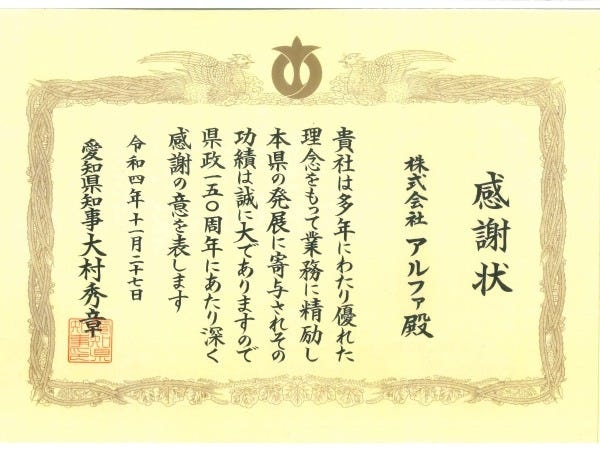 感謝状
株式会社 アルファ殿
貴社は多年にわたり優れた
理念をもって業務に精励し
本県の発展に寄与されその
功績は誠に大でありますので
県政一五〇周年にあたり深く
感謝の意を表します
令和四年十一月二十七日
愛知県知事大村秀章
愛知県
知事印